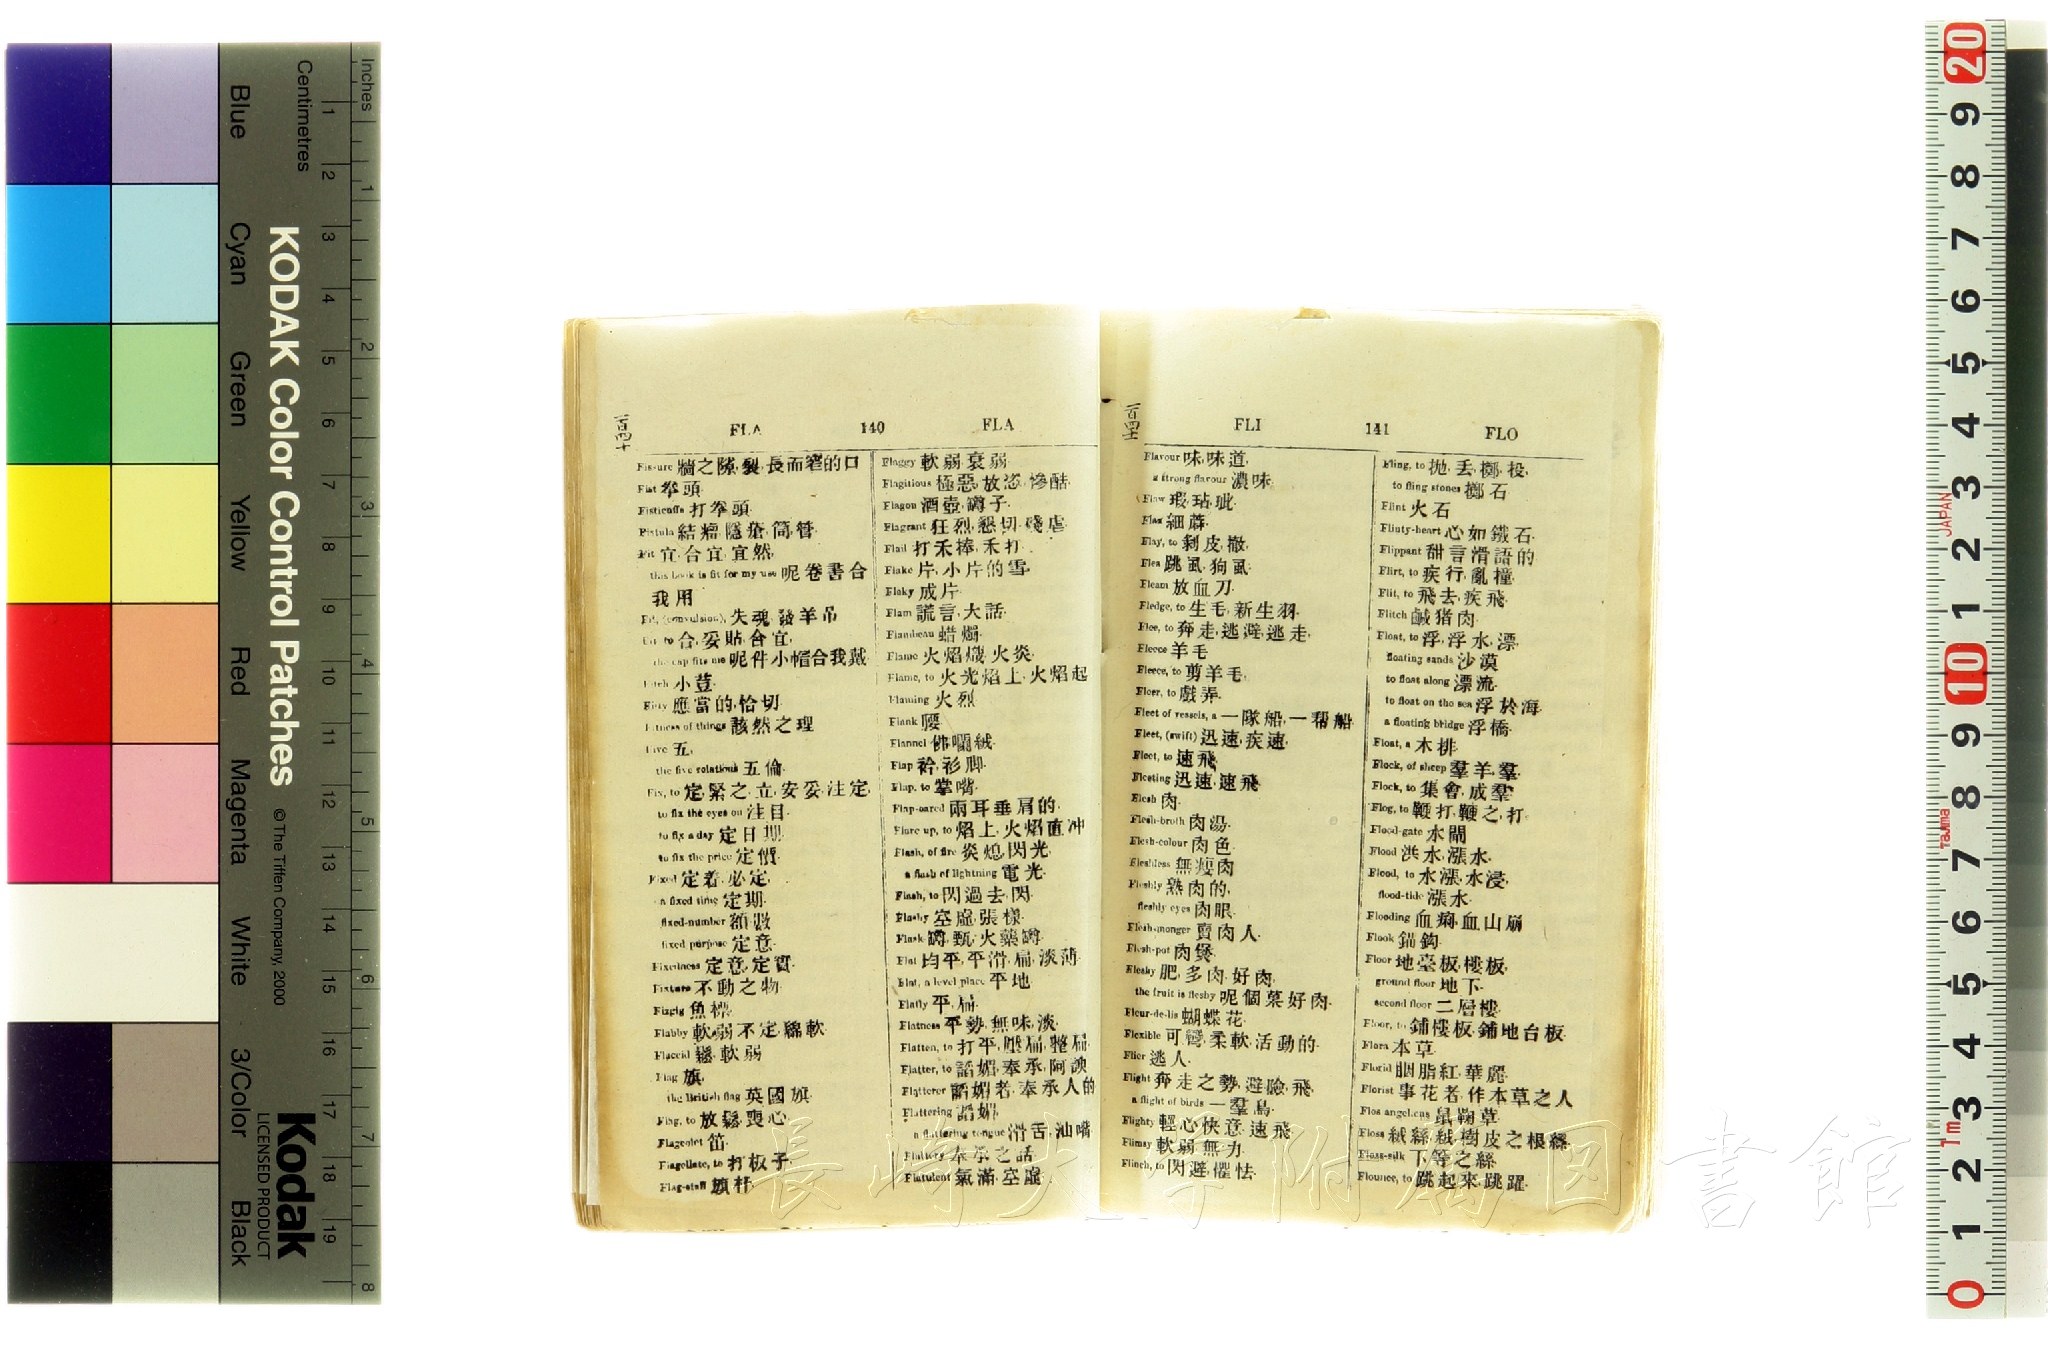 Inches
Centimetres
KODAK Color Control Patches
© The Tiffen Company, 2000
Kodak
LICENSED PRODUCT
Blue
Cyan
Green
Yellow
Red
Magenta
White
3/Color
Black
一百四十
FLA 140 FLA
Fissure 牆之隙,裂,長而窄的口
Fist 拳頭
Fisticuffs 打拳頭
Fistula 結瘤,隱瘡,筒管
Fit 宜,合宜,宜然
this book is fit for my use 呢卷書合
我用
Fit, (convulsion), 失魂,發羊吊
Fit to 合,妥貼,合宜
the cap fits me 呢件小帽合我戴
Fitch 小荳
Fitly 應當的,恰切
Fitness of things 該然之理
Five 五
the five relations 五倫
Fix, to 定,緊之,立,安妥,注定
to fix the eyes on 注目
to fix a day 定日期
to fix the price 定價
Fixed 定着,必定
a fixed time 定期
fixed-number 額數
fixed purpose 定意
Fixedness 定意,定實
Fixture 不動之物
Fizgig 魚標
Flabby 軟弱,不定,綿軟
Flaccid 軟弱
Flag 旗
the British flag 英國旗
Flag, to 放鬆,喪心
Flageolet 笛
Flagellate, to 打板子
Flag-staff 旗杆
Flaggy 軟弱,衰弱
Flagitious 極惡,放恣,慘酷
Flagon 酒壺,罇子
Flagrant 狂烈,懇切,殘虐
Flail 打禾捧,禾打
Flake 片,小片的雪
Flaky 成片
Flam 謊言,大話
Flambeau 蜡燭
Flame 火焰,熾,火炎
Flame, to 火光焰上,火焰起
Flaming 火烈
Flank 腰
Flannel 佛囒絨
Flap 衿,衫脚
Flap, to 掌嘴
Flap-eared 兩耳垂肩的
Flare up, to 焰上,火焰直冲
Flash, of fire 炎熄,閃光
a flash of lightning 電光
Flash, to 閃過去,閃
Flashy 空虛,張樣
Flask 罇,甄,火藥罇
Flat 均平,平滑,扁,淡薄
Flat, a level place 平地
Flatly 平,扁
Flatness 平勢,無味,淡
Flatten, to 打平,壓扁,整扁
Flatter, to 諂媚,奉承,阿諛
Flatterer 諂媚者,奉承人的
Flattering 諂媚
a flattering tongue 滑舌,油嘴
Flattery 奉承之話
Flatulent 氣滿,空虛
一百四十一
FLI 141 FLO
Flavour 味,味道
a strong flavour 濃味
Flaw 瑕,玷,玼
Flax 細蔴
Flay, to 剥皮
Flea 跳虱,狗虱
Fleam 放血刀
Fledge, to 生毛,新生羽
Flee, to 奔走,逃避,逃走
Fleece 羊毛
Fleece, to 剪羊毛
Fleer, to 戲弄
Fleet of vessels, a 一隊船,一帮船
Fleet, (swift) 迅速,疾速
Fleet, to 速飛
Fleeting 迅速,速飛
Flesh 肉
Flesh-broth 肉湯
Flesh-colour 肉色
Fleshless 無瘦肉
Fleshly 熟肉的
fleshly eyes 肉眼
Flesh-monger 賣肉人
Flesh-pot 肉煲
Fleshy 肥,多肉,好肉
the fruit is fleshy 呢個菓好肉
Fleur-de-lis 蝴蝶花
Flexible 可彎,柔軟,活動的
Flier 逃人
Flight 奔走之勢,避險,飛
a flight of birds 一羣鳥
Flighty 輕心,快意,速飛
Flimsy 軟弱,無力
Flinch, to 閃避,懼怯
Fling, to 抛,丢,擲,投
to fling stones 擲石
Flint 火石
Flinty-heart 心如鐵石
Flippant 甜言滑語的
Flirt, to 疾行,亂撞
Flit, to 飛去,疾飛
Flitch 鹹猪肉
Float, to 浮,浮水,漂
floating sands 沙漠
to float along 漂流
to float on the sea 浮於海
a floating bridge 浮橋
Float, a 木排
Flock, of sheep 羣羊,羣
Flock, to 集會,成羣
Flog, to 鞭打,鞭之,打
Flood-gate 水閘
Flood 洪水,漲水
Flood, to 水漲,水浸
flood-tide 漲水
Flooding 血痾,血山崩
Flook 錨鈎
Floor 地臺板,樓板
ground floor 地下
second floor 二層樓
Floor, to 鋪樓板,鋪地台板
Flora 本草
Florid 胭脂紅,華麗
Florist 事花者,作本草之人
Flos angelcus 鼠麴草
Floss 絨絲,絨,樹皮之根絲
Floss-silk 下等之絲
Flounce, to 跳起來,跳躍
長崎大学附属図書館
JAPAN
Tajima
1m